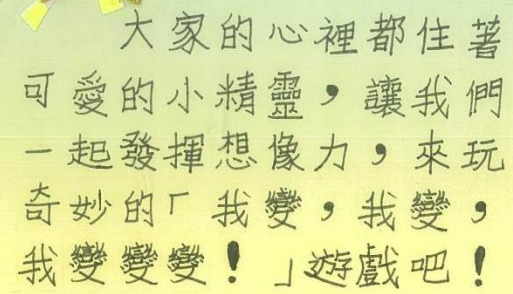 大家的心裡都住著
可愛的小精靈，讓我們
一起發揮想像力，來玩
奇妙的「我變，我變，
我變變變！」遊戲吧！